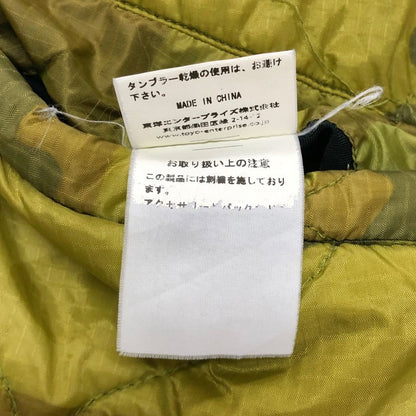 タンブラー乾燥の使用は、お避け
下さい。
MADE IN CHINA
東洋エンタープライズ株式会社
東京都墨田区緑 2-14-12
www.toyo-enterprise.co.jp
お取り扱い上の注意
この製品には刺繍を施しており
ます。